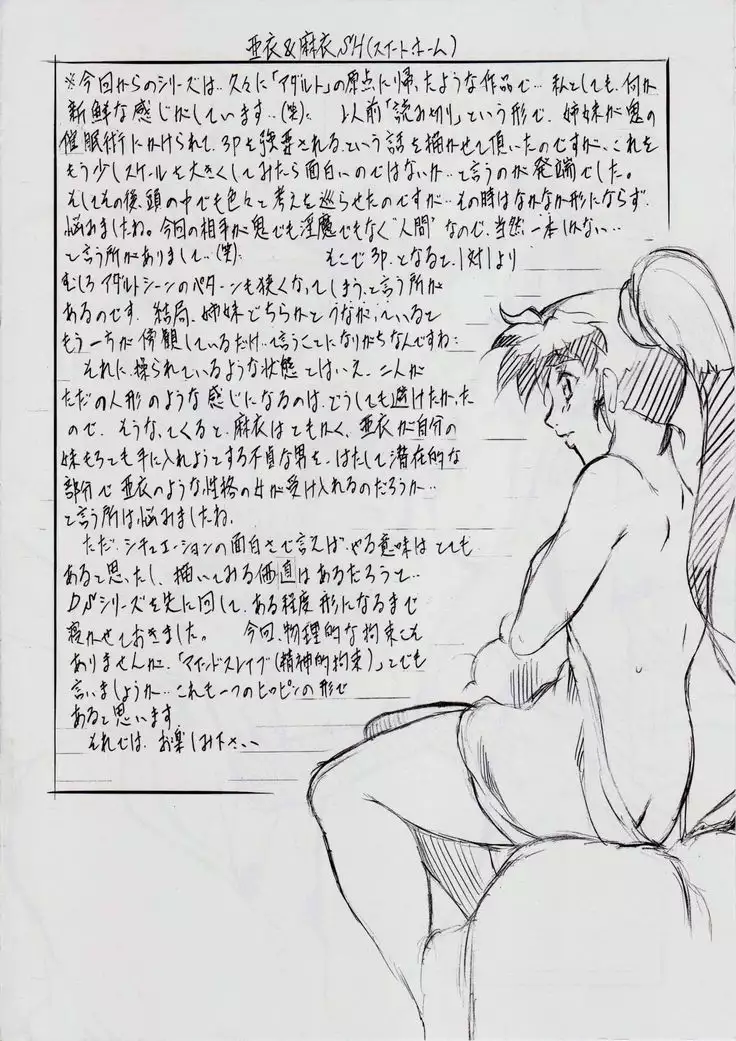 亜衣&麻衣SH(スイートホーム)
※今回からのシリーズは‥久々に「アダルト」の原点に帰ったような作品で‥私としても、何か
新鮮な感じがしています‥(笑)。 以前「読み切り」という形で、姉妹が鬼の
催眠術にかけられて、3Pを強要される、という話を描かせて頂いたのですが、これを
もう少しスケールを大きくしてみたら面白いのではないか‥と言うのが発端でした。
そしてその後、頭の中でも色々と考えを巡らせたのですが‥その時はなかなか形にならず、
悩みましたね。今回の相手が鬼でも淫魔でもなく"人間"なので、当然、一本しかない‥
と言う所がありまして‥(笑)。 そこで3P、となると、1対1より
むしろアダルトシーンのパターンも狭くなってしまう、と言う所が
あるのです。結局、姉妹どちらかとつながっていると
もう一方が傍観しているだけ‥と言うことになりがちなんですね。
それに、操られているような状態とはいえ、二人が
ただの人形のような感じになるのは、どうしても避けたかった
ので、そうなってくると、麻衣はともかく、亜衣が自分の
妹もろとも手に入れようとする不貞な男を、はたして潜在的な
部分で亜衣のような性格の女が受け入れるのだろうか‥
と言う所は悩みましたね。
ただ、シチュエーションの面白さで言えば、やる意味はとても
あると思ったし、描いてみる価値はあるだろうと‥
DSシリーズを先に回して、ある程度形になるまで
寝かせておきました。 今回、物理的な拘束こそ
ありませんが、「マインドスレイブ(精神的拘束)」とでも
言いましょうか‥これも一つのヒロピンの形で
あると思います。
それでは、お楽しみ下さい‥